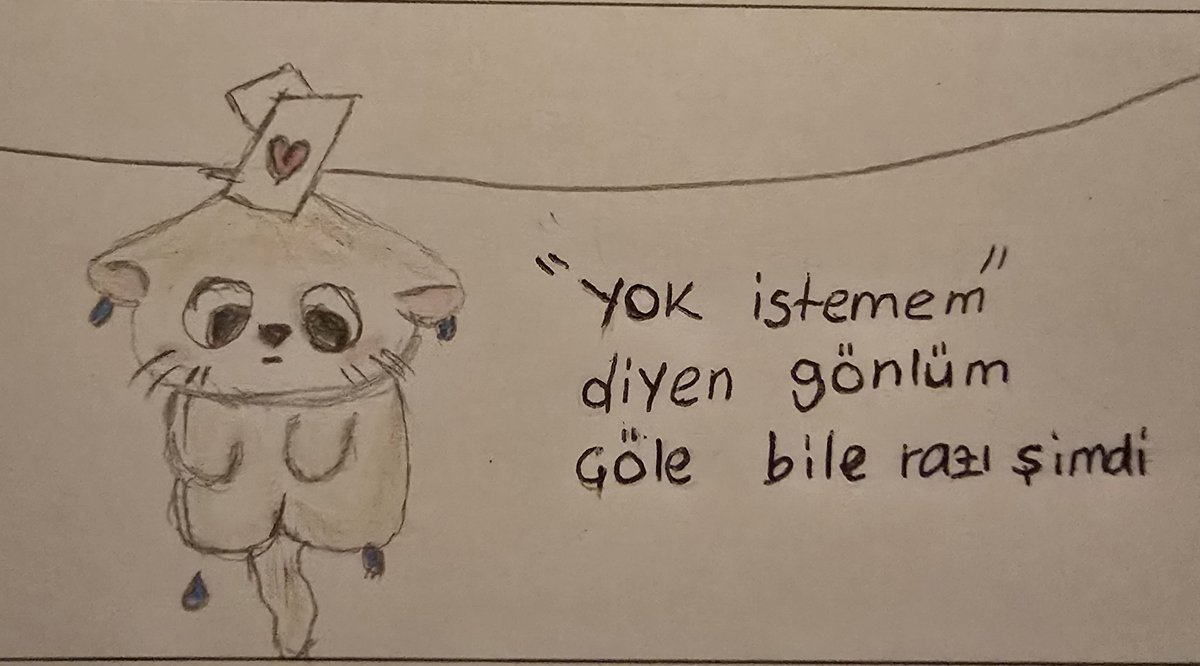 "YOK istemem"
diyen gönlüm
Göle bile razı şimdi